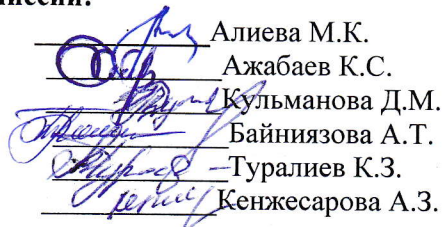 Алиева М.К.
Ажабаев К.С.
Кульманова Д.М.
Байниязова А.Т.
Туралиев К.З.
Кенжесарова А.З.